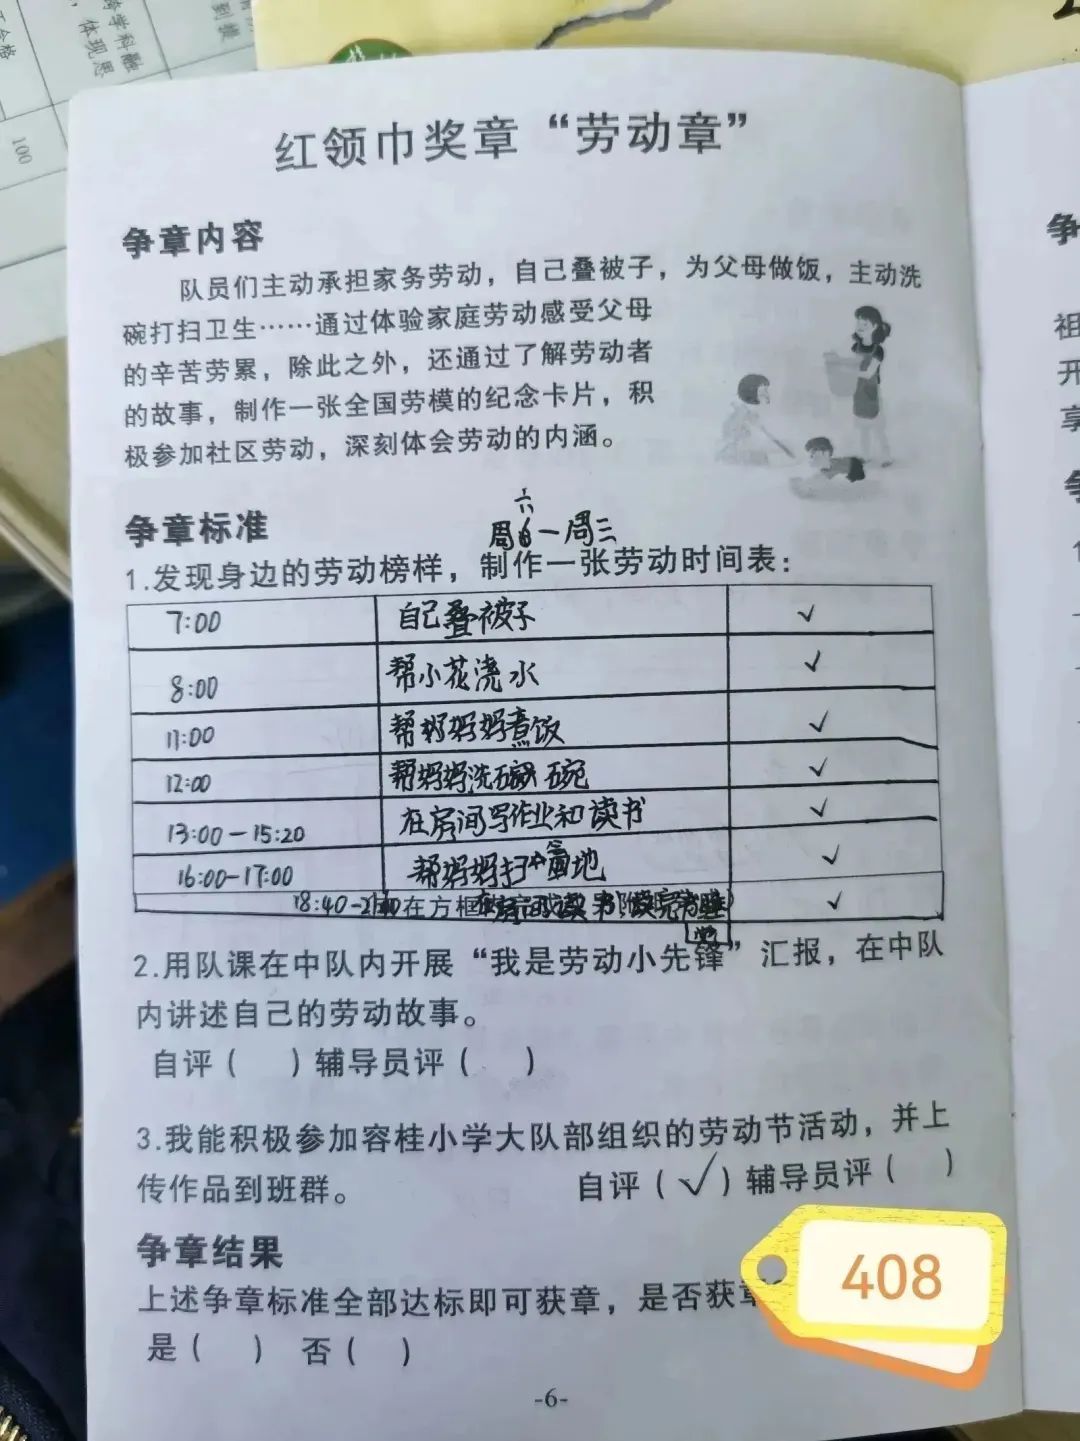 跨学科融
体现思
不合格
100
红领巾奖章“劳动章”
争章内容
队员们主动承担家务劳动，自己叠被子，为父母做饭，主动洗
碗打扫卫生……通过体验家庭劳动感受父母
的辛苦劳累，除此之外，还通过了解劳动者
的故事，制作一张全国劳模的纪念卡片，积
极参加社区劳动，深刻体会劳动的内涵。
争章标准
周六一周三
1.发现身边的劳动榜样，制作一张劳动时间表：
7:00 自己叠被子 ✓
8:00 帮小花浇水 ✓
11:00 帮妈妈煮饭 ✓
12:00 帮妈妈洗碗 ✓
13:00－15:20 在房间写作业和读书 ✓
16:00－17:00 帮妈妈扫地 ✓
18:40 在方框 ✓
2.用队课在中队内开展“我是劳动小先锋”汇报，在中队
内讲述自己的劳动故事。
自评（ ）辅导员评（ ）
3.我能积极参加容桂小学大队部组织的劳动节活动，并上
传作品到班群。 自评（✓）辅导员评（ ）
争章结果
上述争章标准全部达标即可获章，是否获章
是（ ） 否（ ）
408
-6-
争
祖
开
享